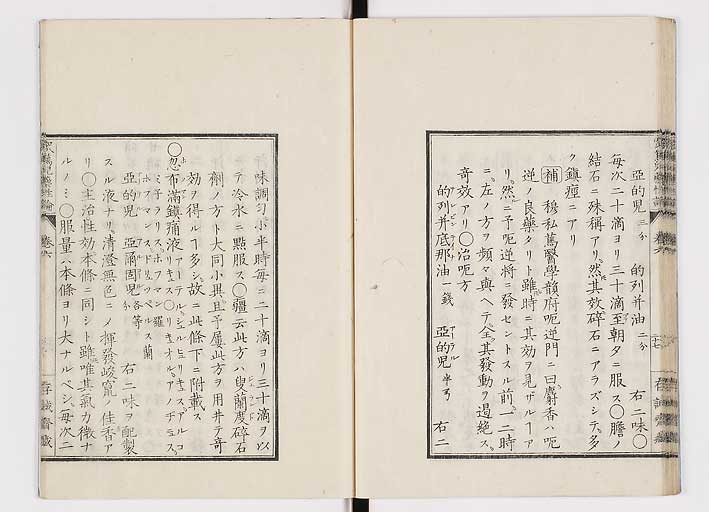 亞的兒 三分 的列并油 二匕 右二味〇
每次二十滴ヨリ三十滴至朝夕ニ服ス〇膽ノ
結石ニ殊稱アリ然其效碎石ニアラズシテ多
ク鎮痙ニアリ
補 穆私篤醫學韻府呃逆門ニ曰麝香ハ呃
逆ノ良藥タリト雖時ニ其効ヲ見ザルヿア
リ然ニ予呃逆將ニ發セントスル前一二時
ニ左ノ方ヲ頻々與ヘテ全其發動ヲ遏絶ス
奇效アリ〇治呃方
的列并底那油 一錢 亞的兒 半弓 右二
味調勻小半時每ニ二十滴ヨリ三十滴ヲ以
テ冷水ニ點服ス〇疆云此方ハ叟蘭度碎石
劑ノ方ト大同小異且予屢此方ヲ用井テ奇
効ヲ得ルヿ多シ故ニ此條下ニ附載ス
〇忽布滿鎮痛液
ホフマン 羅
ホフマンス 蘭
亞的兒 亞爾固兒 各等分 右二味ヲ配製
スル液ナリ清澄無色ニノ揮發峻竄ノ佳香ア
リ〇主治性効本條ニ同シト雖唯其氣力微ナ
ルノミ〇服量ハ本條ヨリ大ナルベシ每次二
卷六
存誠齋藏